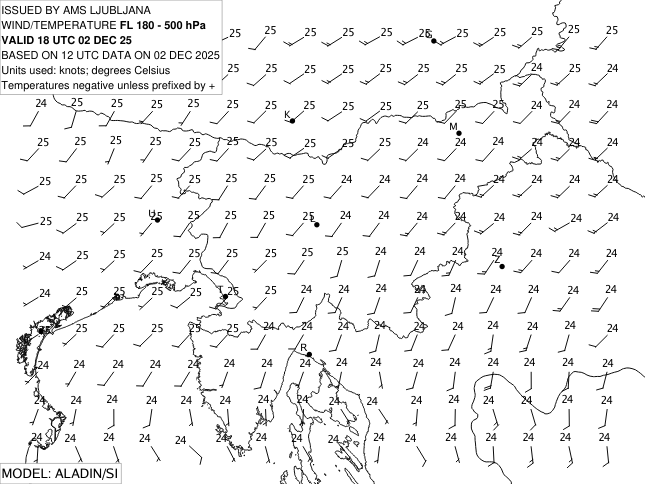 ISSUED BY AMS LJUBLJANA
WIND/TEMPERATURE FL 180 - 500 hPa
VALID 18 UTC 02 DEC 25
BASED ON 12 UTC DATA ON 02 DEC 2025
Units used: knots; degrees Celsius
Temperatures negative unless prefixed by +
25 25 25 25 25 G 25 25 25 25 25 25
25 25 25 25 25 25 25 24 25 24
24 25 25 25 25 25 K 25 25 25 25 25 25 24 24 24
M
25 25 25 25 25 25 25 25 25 24 24 24 24 24 24 24
24 25 25 25 25 25 25 25 24 24 24 24 24 24 24 24
25 25 25 U 25 25 25 25 L 25 24 24 24 24 24 24 24 24
24 25 25 25 25 25 25 25 25 24 24 24 Z 24 24 24 24
24 25 25 25 25 T 25 25 24 24 24 24 24 24 24 24 24
25 25 25 25 25 24 24 24 24 24 24 24 24 24 24
R
24 24 24 24 24 24 24 24 24 24 24 24 24 24 24 24
24 24 24 24 24 24 24 24 24 24 24 24 24 24 24 24
24 24 24 24 24 24 24 24 24 24 24 24 24 24 24 24
MODEL: ALADIN/SI